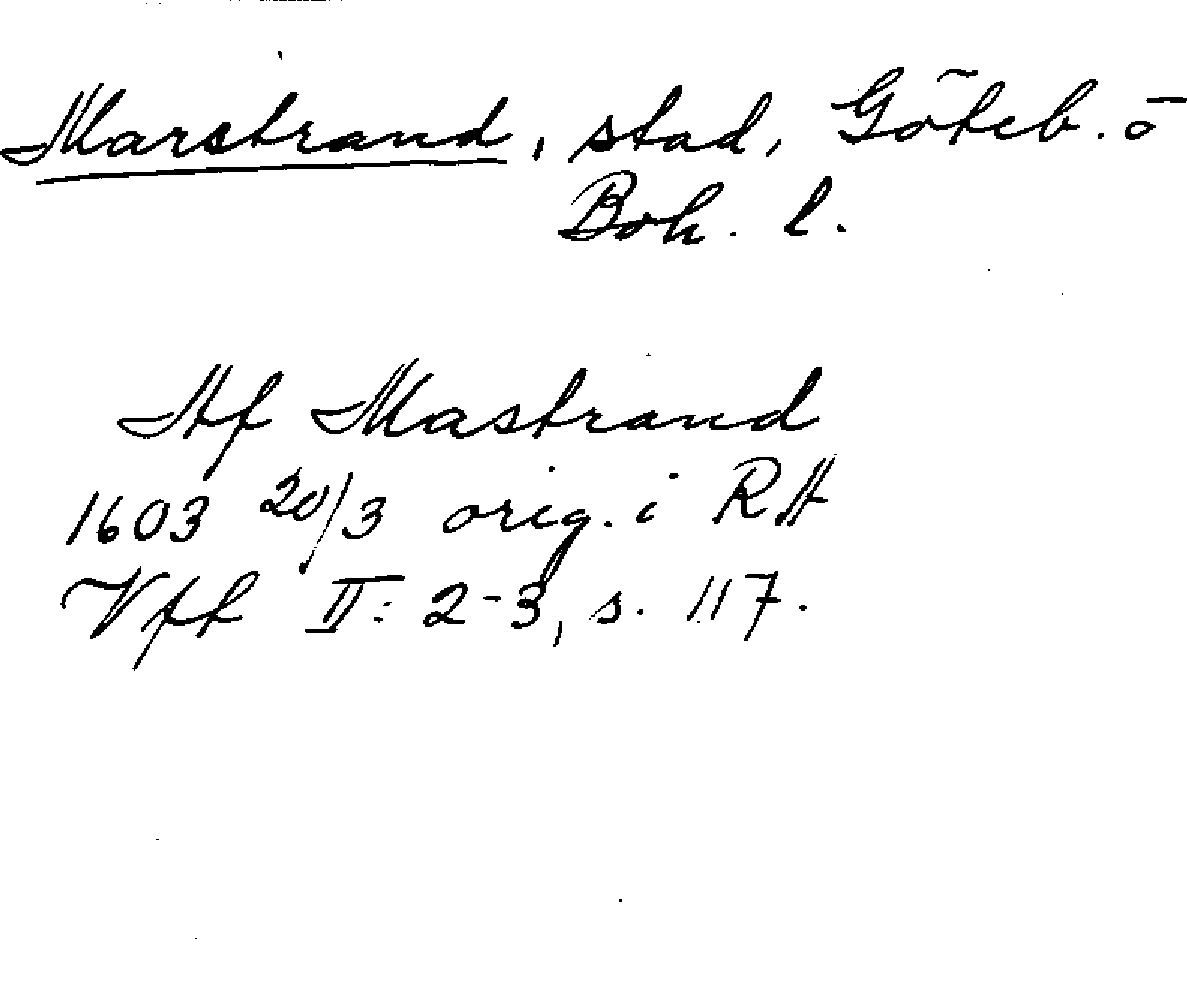 Marstrand, stad, Göteb. ö
Boh. l.
Aff Mastrand
1603 20/3 orig. i RA
Vfl II: 2-3, s. 117.